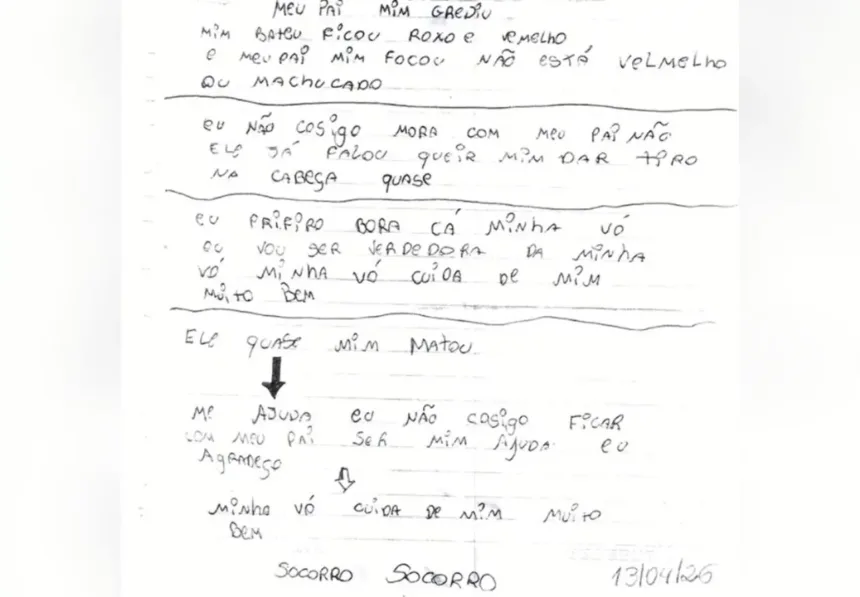 MEU PAI MIM GREDIU
MIM BATEU FICOU ROXO E VEMELHO
E MEU PAI MIM FOCOU NÃO ESTÁ VELMELHO
OU MACHUCADO
EU NÃO COSIGO MORA COM MEU PAI NÃO
ELE JÁ FALOU QUEIR MIM DAR TIRO
NA CABEÇA QUASE
EU PRIFIRO BORA CÁ MINHA VÓ
OU VOU SER VERDEDORA DA MINHA
VÓ MINHA VÓ CUIDA DE MIM
MUITO BEM
ELE QUASE MIM MATOU
ME AJUDA EU NÃO COSIGO FICAR
COM MEU PAI SER MIM AJUDA EU
AGRADEÇO
MINHA VÓ CUIDA DE MIM MUITO
BEM
SOCORRO SOCORRO 13/04/26